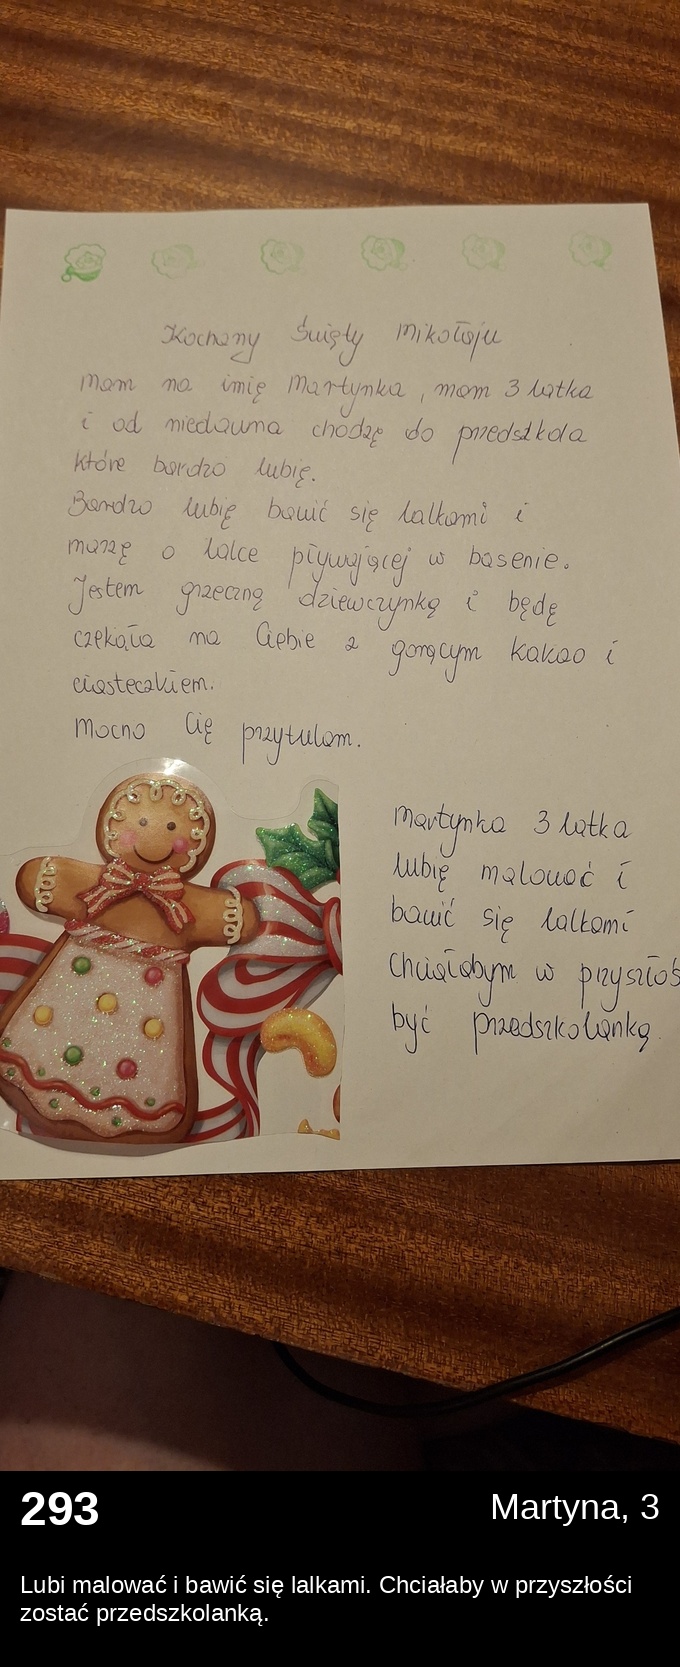 Kochany Święty Mikołaju
mam na imię Martynka, mam 3 latka
i od niedawna chodzę do przedszkola
które bardzo lubię.
Bardzo lubię bawić się lalkami i
marzę o lalce pływającej w basenie.
Jestem grzeczną dziewczynką i będę
czekała na Ciebie z gorącym kakao i
ciasteczkiem.
mocno Cię przytulam.
Martynka 3 latka
lubię malować i
bawić się lalkami
Chciałabym w przyszłoś
być przedszkolanką
293
Martyna, 3
Lubi malować i bawić się lalkami. Chciałaby w przyszłości
zostać przedszkolanką.